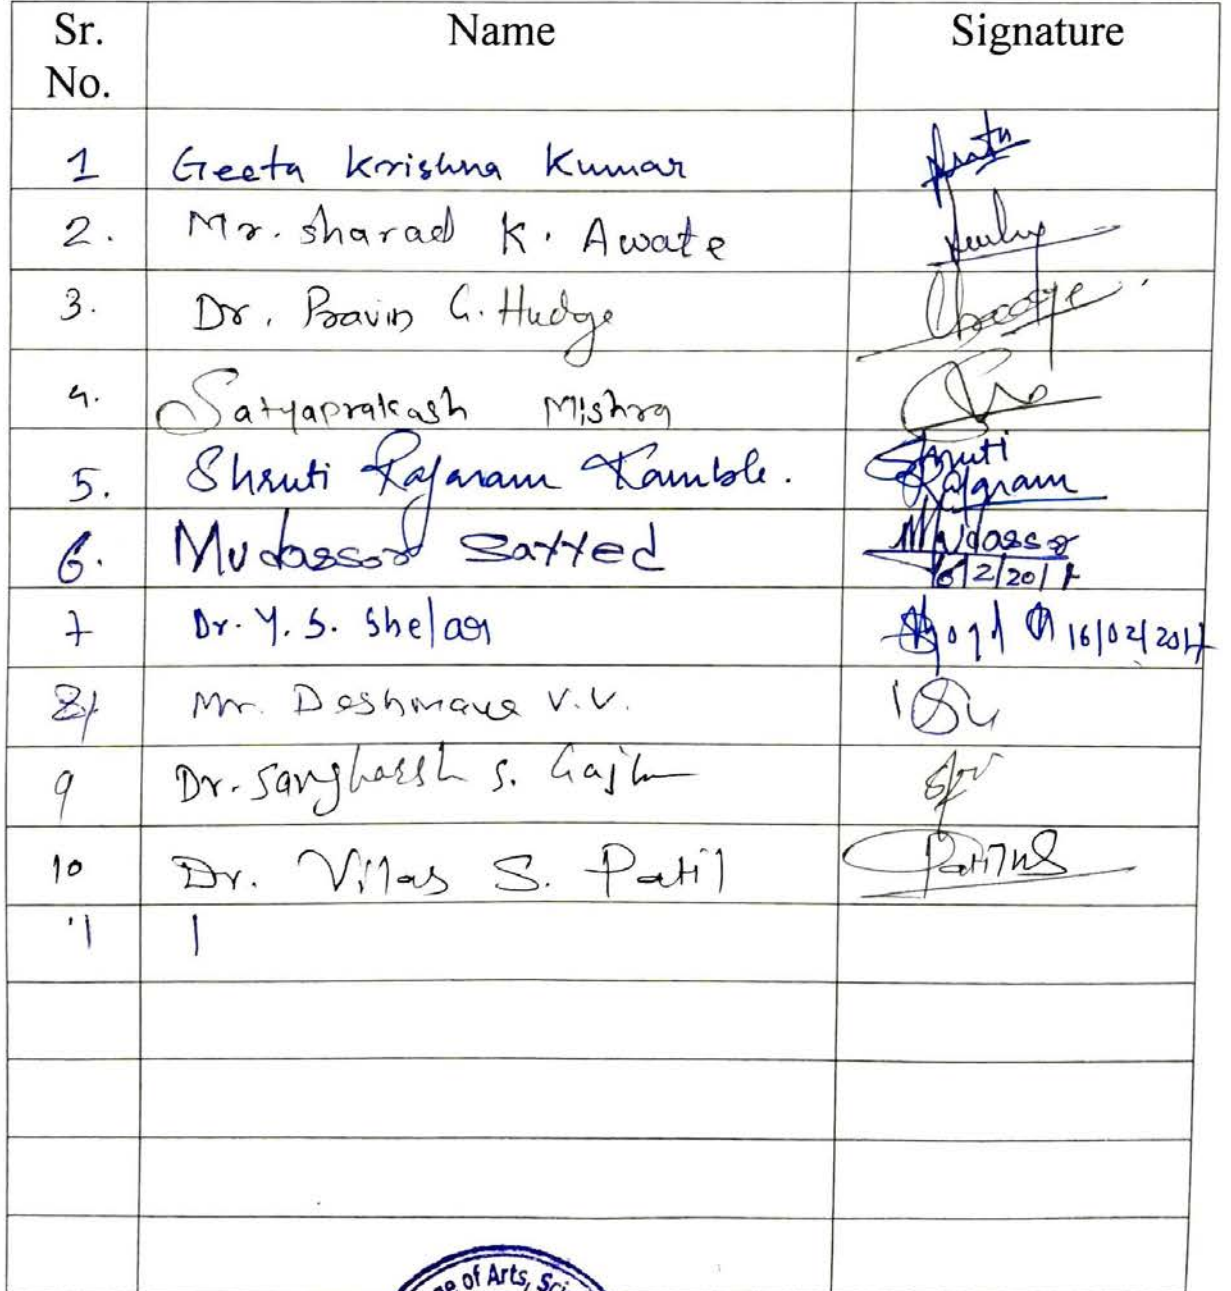 Sr. No. Name Signature
1 Geeta Krishna Kumar
2. Mr. Sharad K. Awate
3. Dr. Pravin G. Hudge
4. Satyaprakash Mishra
5. Shruti Rajaram Kamble. Shruti Rajaram
6. Mudassor Sayyed Mudassor
7 Dr. Y. S. Shelar 16/02/2017
8/ Mr. V.V.
9 Dr. Sangharsh S.
10 Dr. Vilas S. Patil PatilVS
11
ge of Arts, Sci